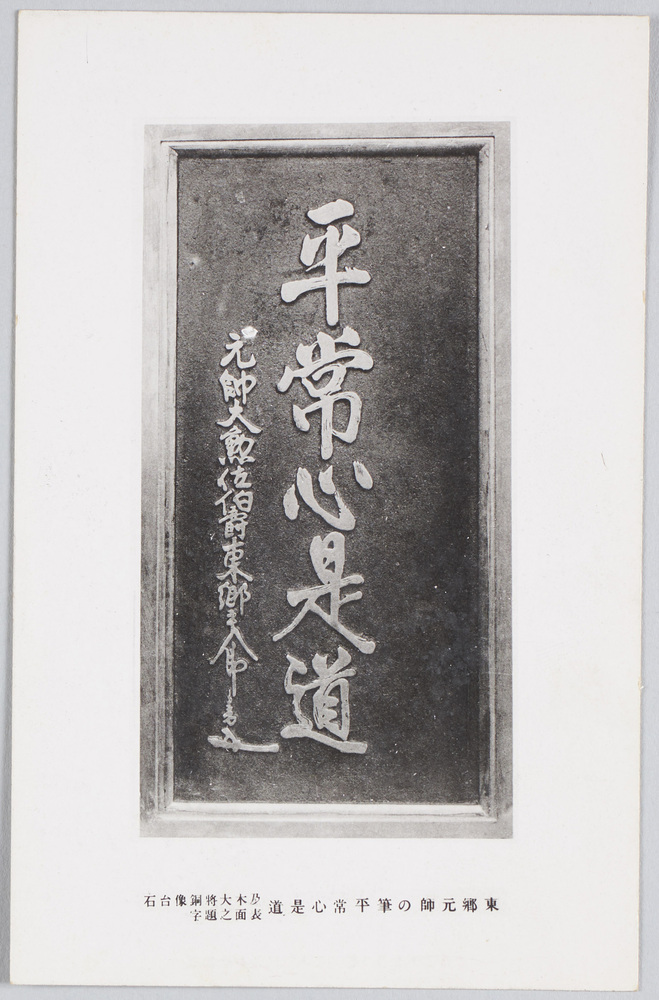 平常心是道
元帥大勲位伯爵東郷平八郎書
東郷元帥の筆平常心是道
乃木大将銅像台石
表面之題字